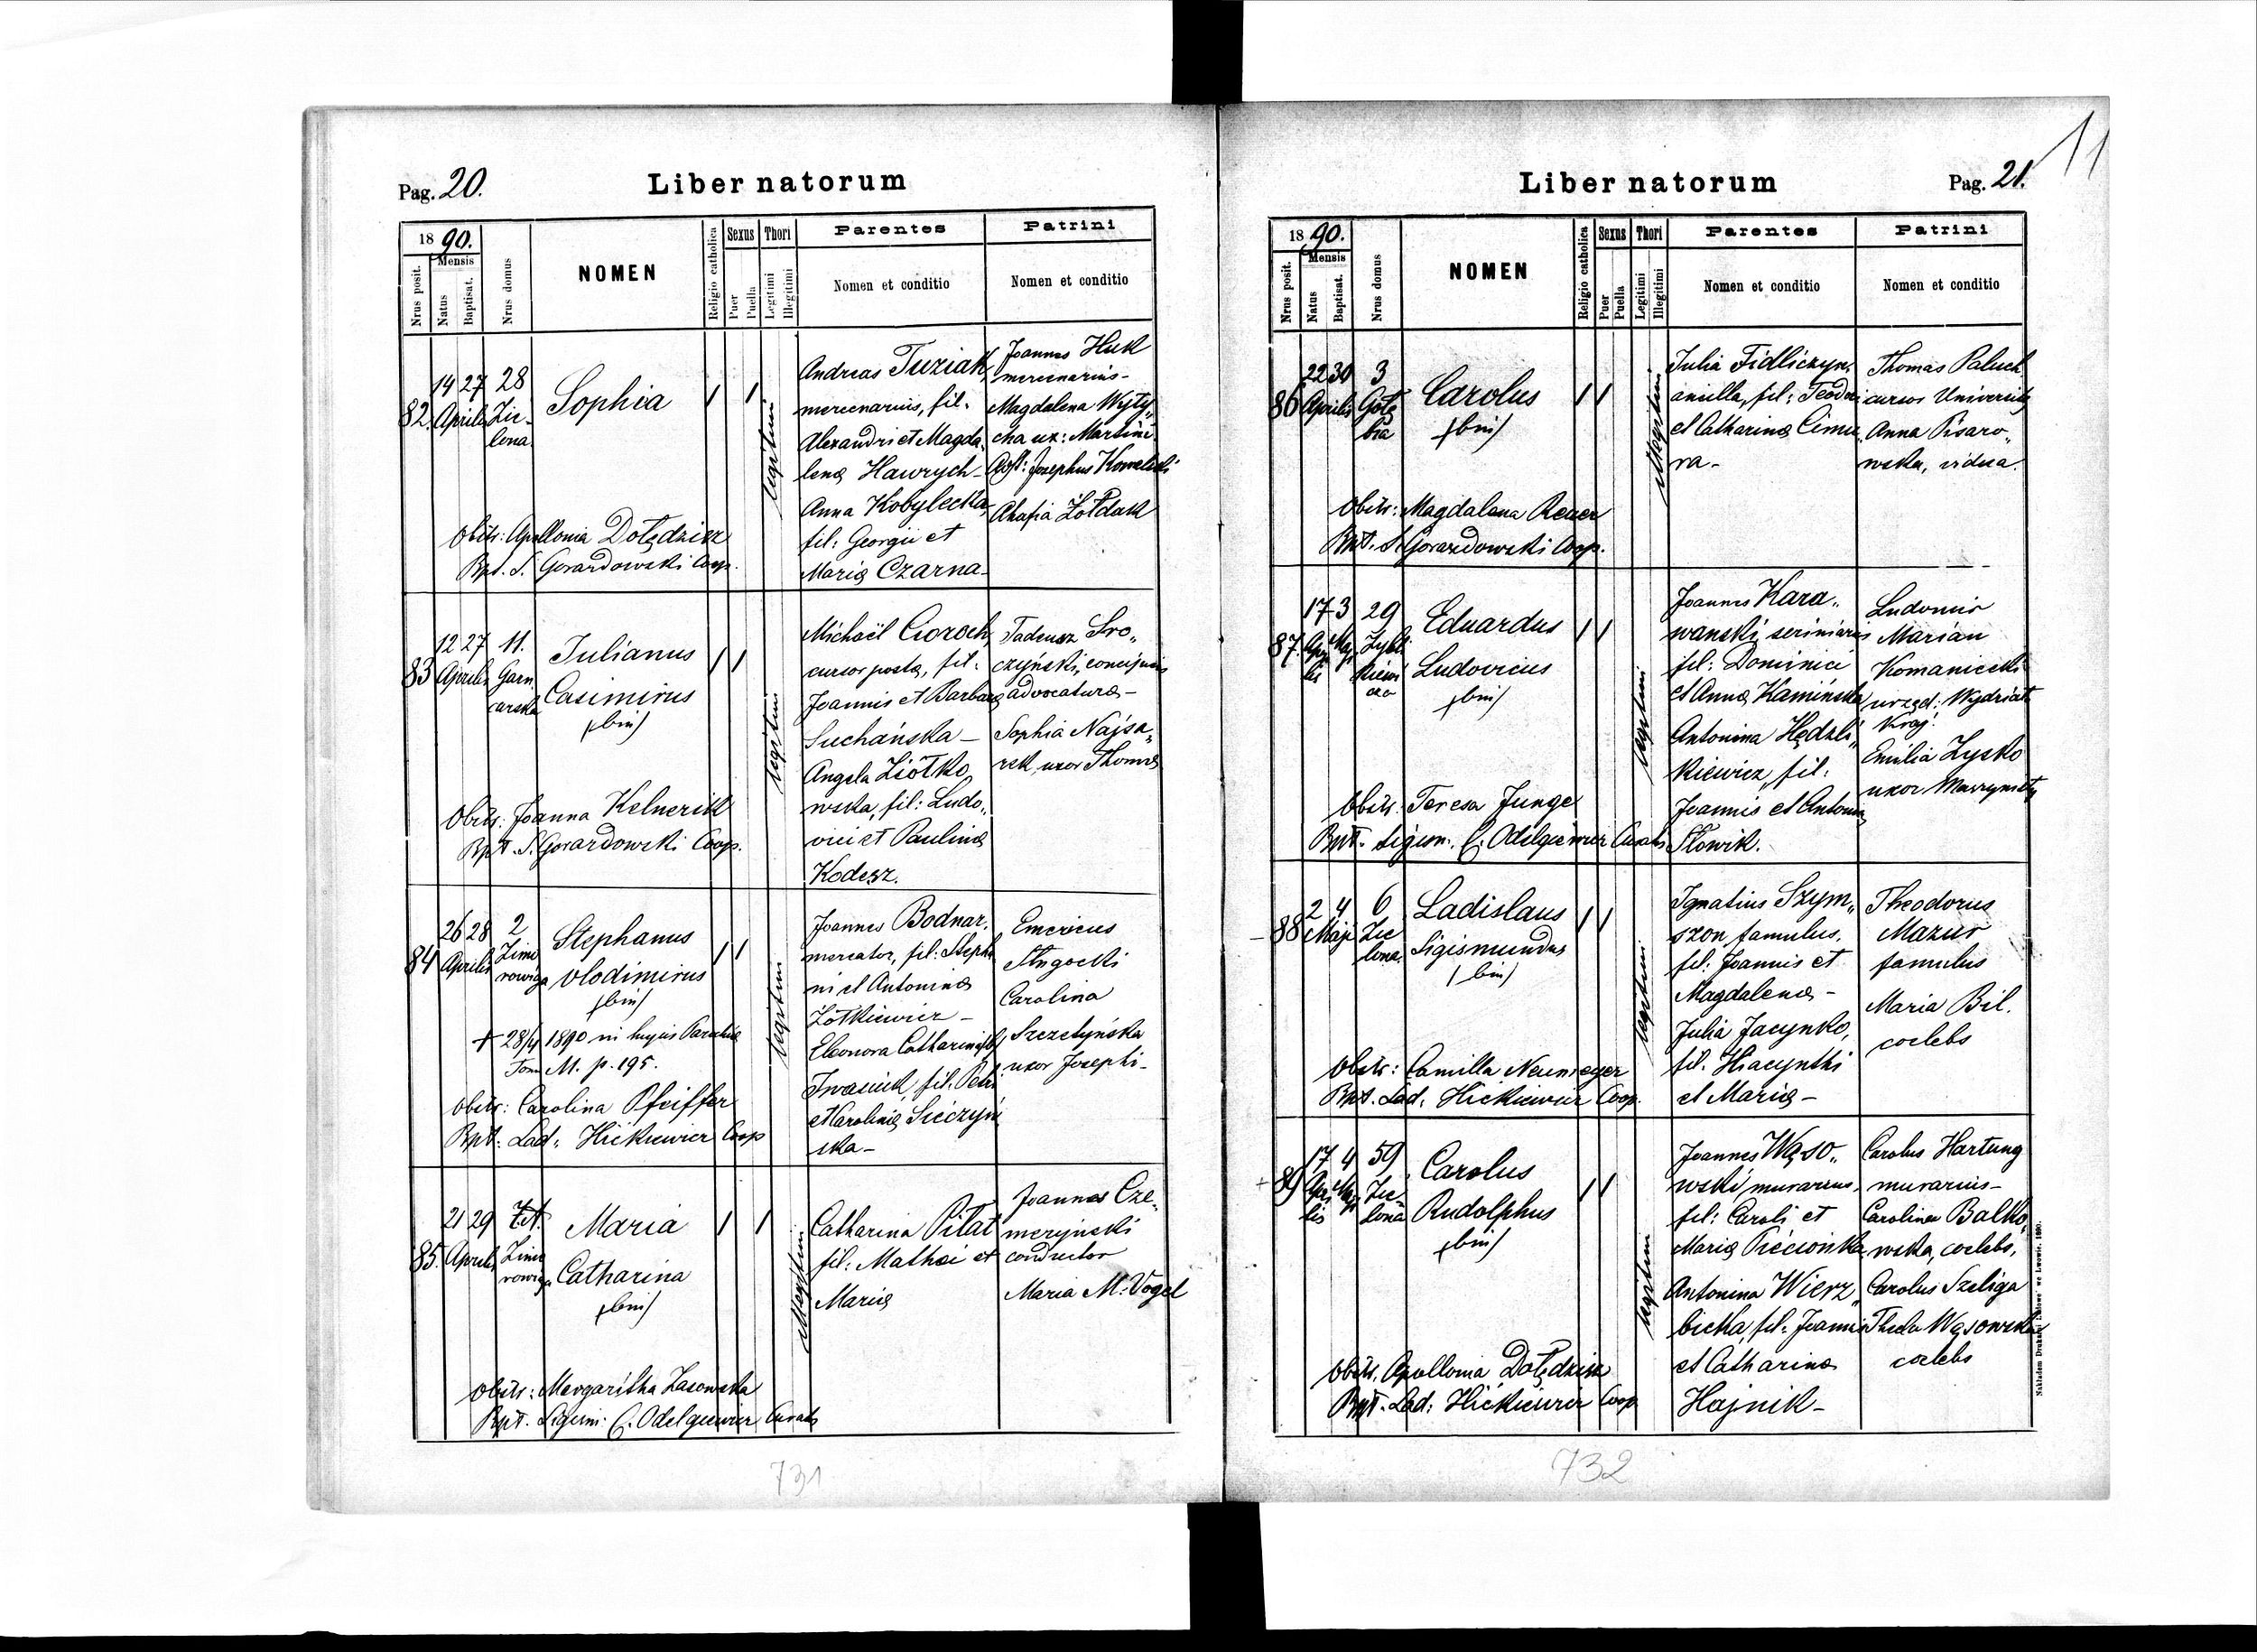 Pag. 20.
Liber natorum
18 90.
Nrus posit.
Mensis
Natus
Baptisat.
Nrus domus
NOMEN
Religio catholica
Sexus
Puer
Puella
Thori
Legitimi
Illegitimi
Parentes
Nomen et conditio
Patrini
Nomen et conditio
82.
14 27
Aprilis
28
Zie-
lona
Sophia
legitimi
Andreas Tuziak,
mercenarius, fil:
Alexandri et Magda-
lena Hawrych -
Anna Kobylecka,
fil: Georgii et
Maria Czarna -
Joannes Huk
mercenarius -
Magdalena Wyty„
cha ux: Martini
Josephus Kowalski
Ahafia Żołdak
Obstr: Apollonia Dołędzisz
Bpt. S. Gorazdowski Coop.
83
12 27
Aprilis
11.
Garn
carska
Julianus
Casimirus
(bin)
legitimi
Michaël Cioroch,
cursor posta, fil:
Joannis et Barbara
Suchańska -
Angela Ziółko
wska, fil: Ludo„
vici et Paulina
Kodesz.
Tadeusz Sro„
czyński, concipiens
advocatura -
Sophia Najsa„
rek, uxor Thoma
Obstr: Joanna Kelnerik
Bpt. S. Gorazdowski Coop.
84
26 28
Aprilis
2
Zimo
rowicza
Stephanus
Vlodimirus
(bin)
+ 28/4 1890 in hujus Parochia
Tom M. p. 195.
legitimi
Joannes Bodnar,
mercator, fil: Stepha
ni et Antonina
Żółkiewicz -
Eleonora Catharina
Iwasiuk, fil. Petri
et Carolina Siéczyń
ska -
Emericus
Carolina
uxor Josephi -
Obstr: Carolina Pfeiffer
Bpt. Lad. Hićkiewicz Coop
85.
21 29
Aprilis
Zimo
rowicza
Maria
Catharina
(bin)
illegitimi
Catharina Piłat
fil: Mathei et
Maria
Joannes Cze-
meryński
conductor
Maria M. Vogel
Obstr: Margaritha Zasowska
Bpt. Sigism. C. Odelgiewicz Curatus
731
11
Liber natorum
Pag. 21.
18 90.
Nrus posit.
Mensis
Natus
Baptisat.
Nrus domus
NOMEN
Religio catholica
Sexus
Puer
Puella
Thori
Legitimi
Illegitimi
Parentes
Nomen et conditio
Patrini
Nomen et conditio
86
22 30
Aprilis
3
Gołę
bia
Carolus
(bin)
illegitimi
Julia Fidliczyn,
ancilla, fil: Teodori
et Catharina Cimu
ra -
Thomas Paluch
cursor Universit.
Anna Pisaro„
wska, vidua.
Obstr: Magdalena Reuer
Bpt. S. Gorazdowski Coop.
87.
17 3
Apri Maj
lis
29
Zybli
kiewi
cza
Eduardus
Ludovicus
(bin)
legitimi
Joannes Kara„
wanski, scriniarius
fil: Dominici
et Anna Kamińska
Antonina Hędzli„
kiewicz, fil:
Joannis et Antonina
Słowik.
Ludomir
Marian
Komanicki
urzęd: Wydziału
Kraj.
Emilia Zysko
uxor
Obstr. Teresa Junge
Bpt. Sigism. C. Odelgiewicz Curatus
88
2 4
Maji
6
Zie
lona
Ladislaus
Sigismundus
(bin)
legitimi
Ignatius Szym„
szon famulus,
fil: Joannis et
Magdalena -
Julia Jacynko,
fil. Hiacynthi
et Maria -
Theodorus
Mazur
famulus
Maria Bil.
coelebs
Obstr: Camilla Neumeyer
Bpt. Lad. Hićkiewicz Coop.
+ 89
17 4
Apri Maj
lis
59
Zie
lona
Carolus
Rudolphus
(bin)
legitimi
Joannes Wąso„
wski murarius,
fil: Caroli et
Maria Pięcionka
Antonina Wierz„
bicka, fil: Joannis
et Catharina
Hajnik -
Carolus Hartung
murarius -
Carolina Balko„
wska, coelebs,
Carolus Szeliga
Thecla Wąsowska
coelebs
Obstr. Apollonia Dołędzisz
Bpt. Lad. Hićkiewicz Coop
Nakładem Drukarni Ludowej we Lwowie. 1890.
732